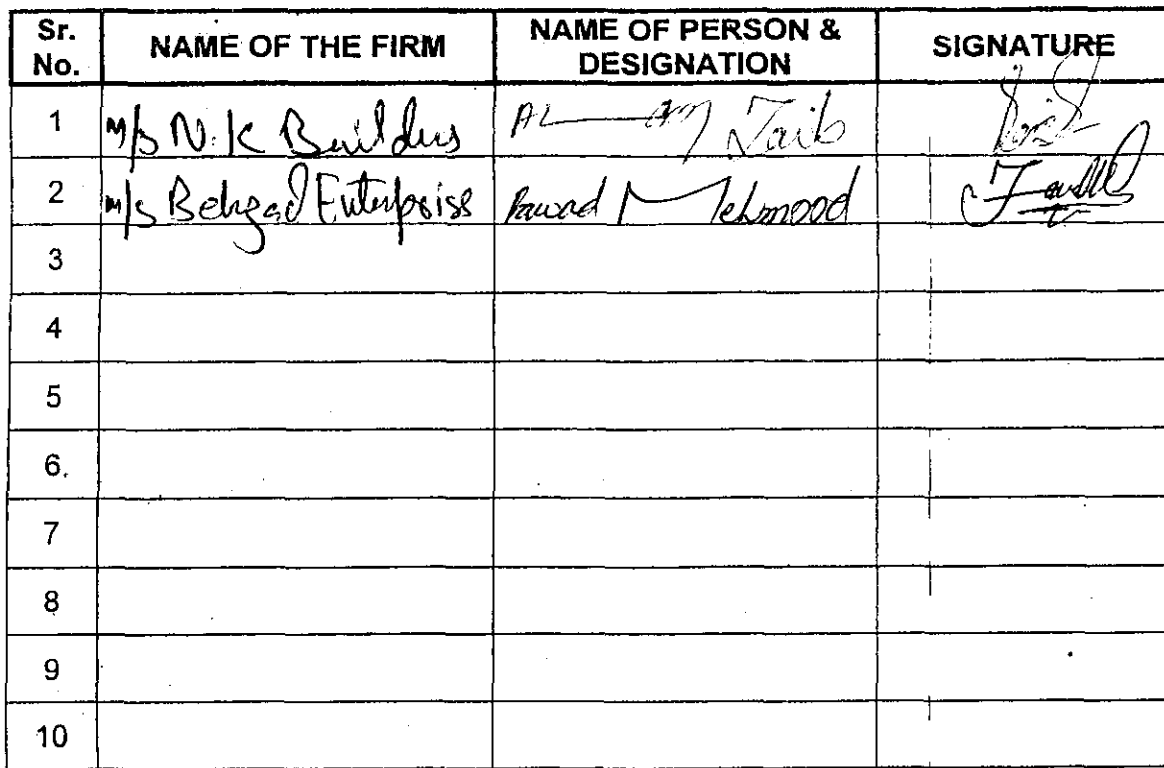 Sr. No. NAME OF THE FIRM NAME OF PERSON & DESIGNATION SIGNATURE
1 M/s N.K Builders Taib
2 M/s Behzad Enterpriss Fawad Mehmood
3
4
5
6
7
8
9
10